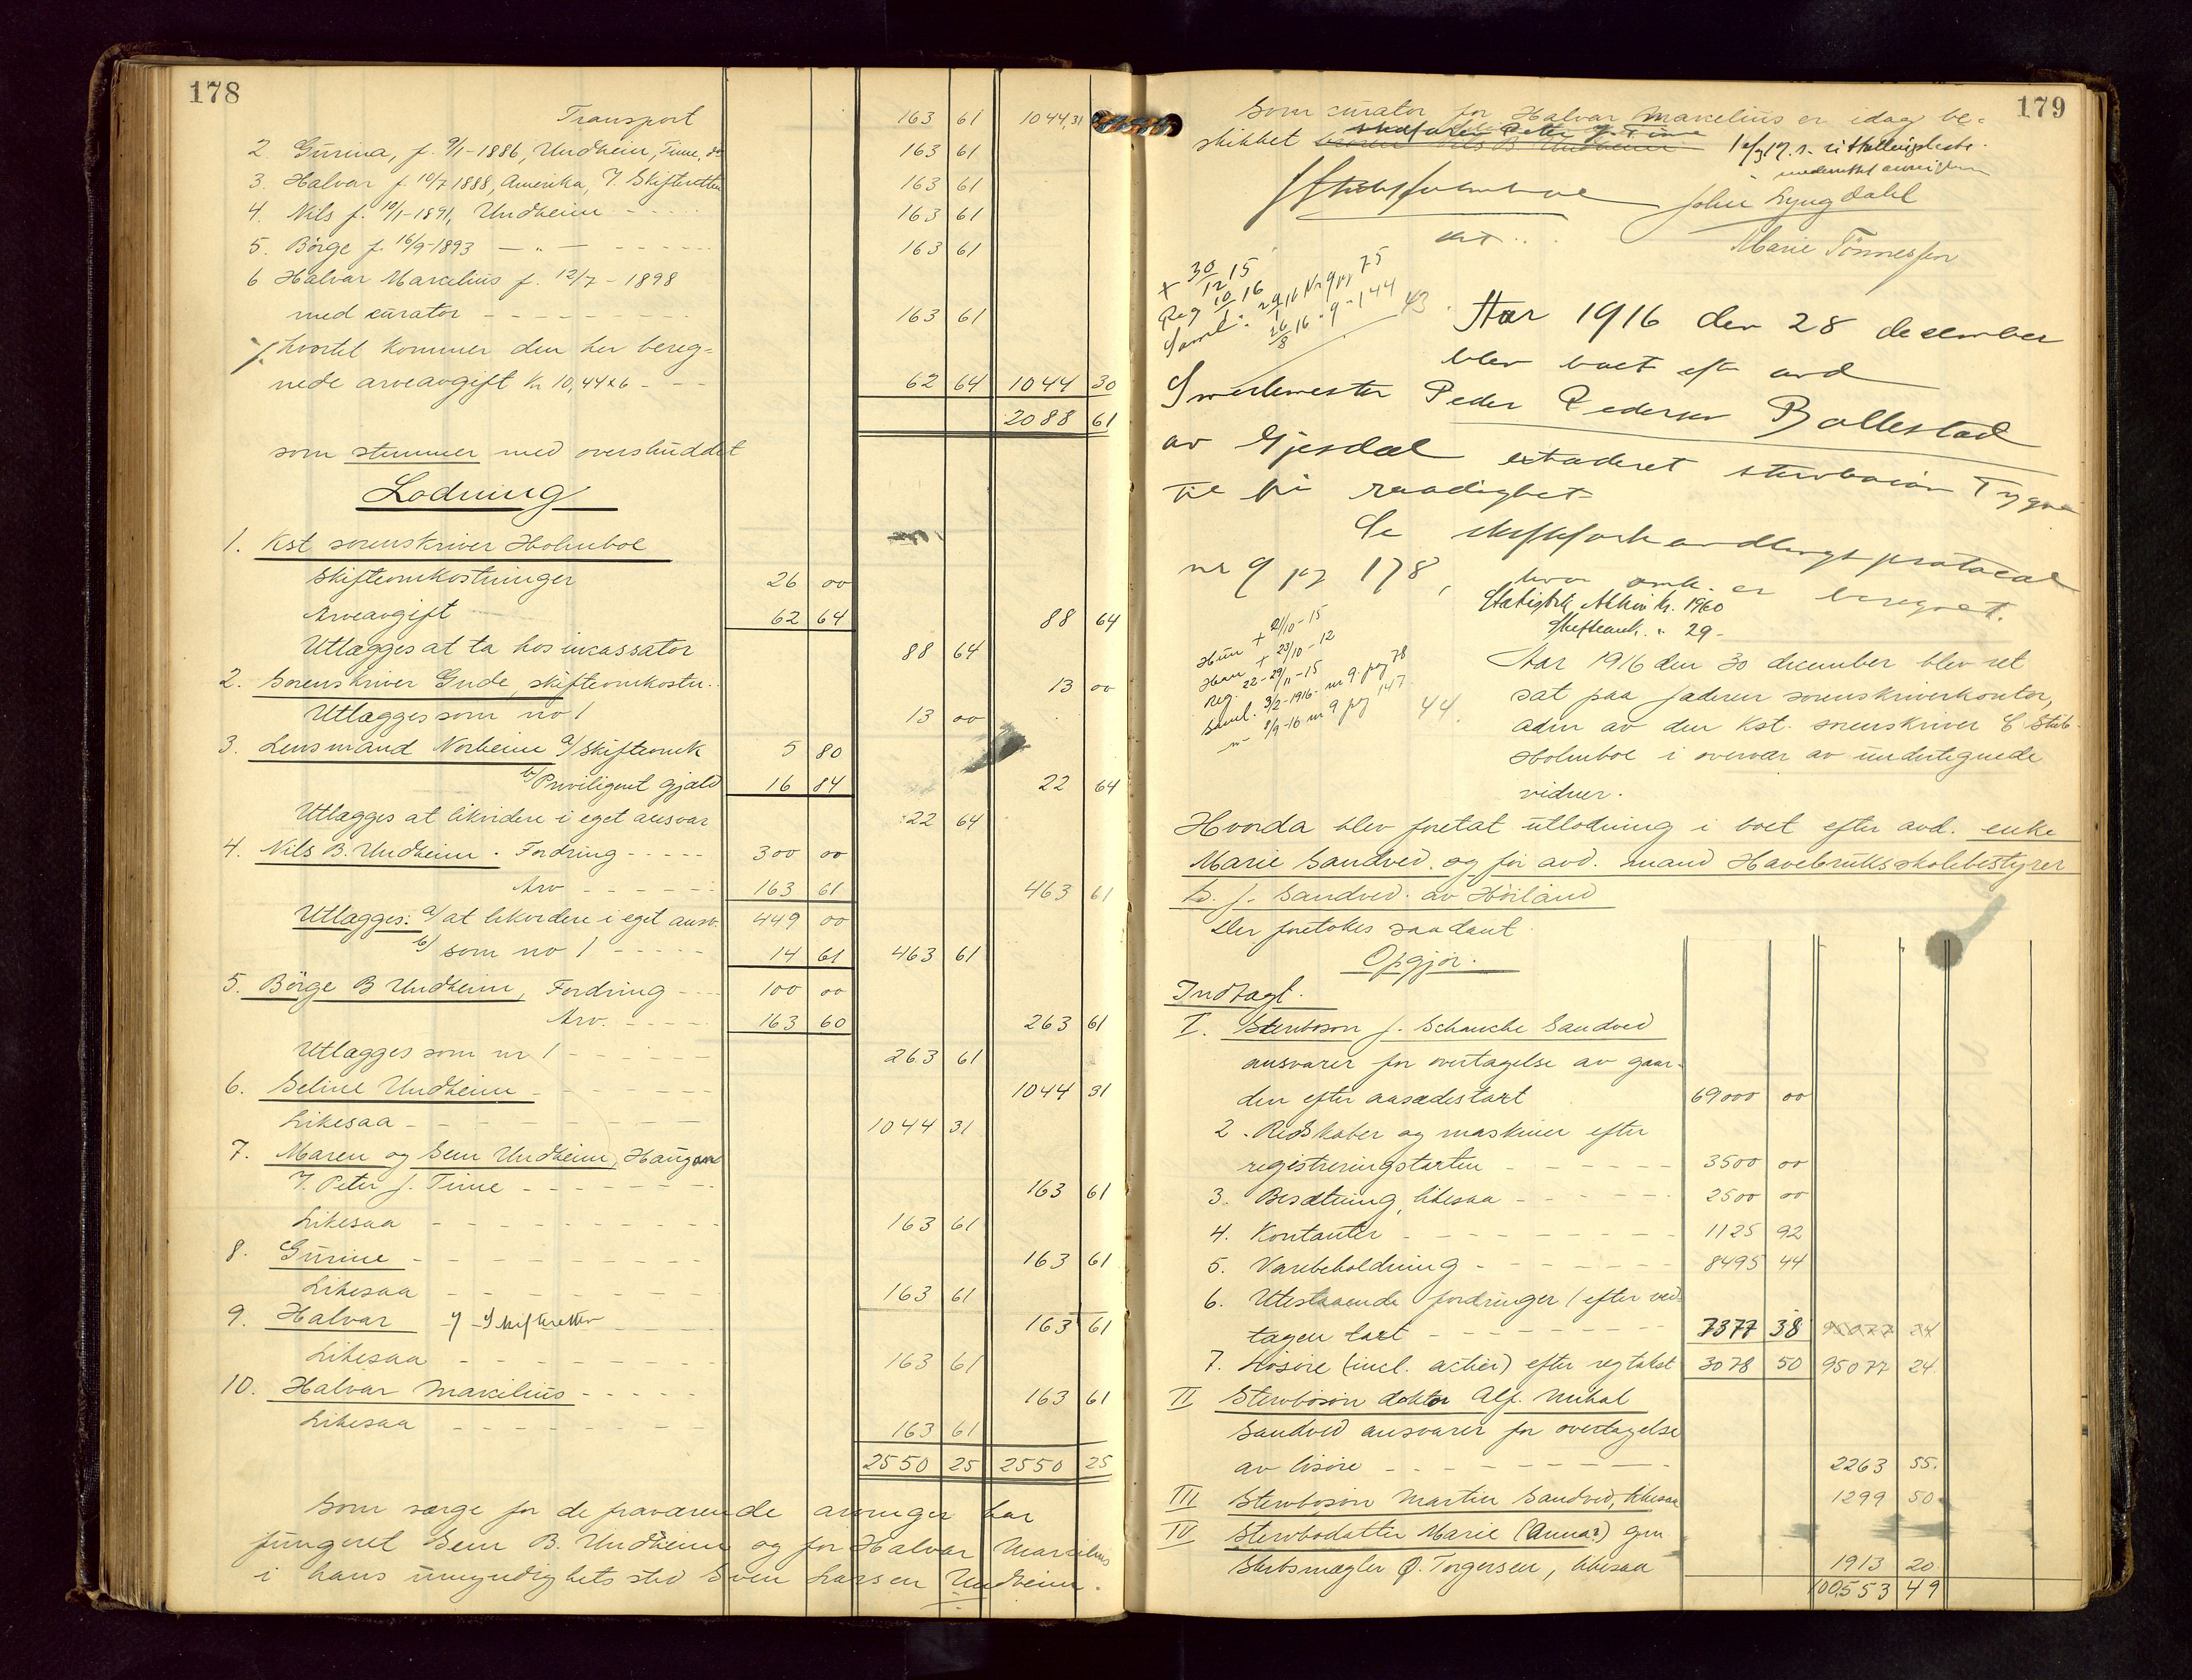 178
Transport 163 61 1044,31
2. Gurina, f. 9/1-1886, Undheim, Time, do 163 61
3. Halvar f. 10/7 1888, Amerika, V. Skifteretten 163 61
4. Nils f. 10/1-1891, Undheim - - - - 163 61
5. Börge f. 16/9-1893 — " — - - - - - 163 61
6 Halvar Marcelius f. 12/7 - 1898
med curator - - - - - - - - - 163 61
hvortil kommer den her bereg=
nede arveavgift Kr 10,44x6 - - - 62 64 1044 30
2088 61
som stemmer med overskuddet
Lodning
1. Kst sorenskriver Holmboe
Skifteomkostninger 26 00
Arveavgift 62 64 88 64
Utlægges at ta hos incassator 88 64
2. Sorenskriver Gude, skifteomkostn. 13 00
Utlægges som no 1 13 00
3. Lensmand Norheim a/ skifteomk 5 80
b/ Priviligeret gjæld 16 84 22 64
Utlægges at likvidere i eget ansvar 22 64
4. Nils B. Undheim. Fordring - - - - - 300 00
Arv - - - - - - 163 61 463 61
Utlægges: a/ at likvidere i eget ansv. 449 00
b/ som no 1 - - - - - 14 61 463 61
5. Börge B Undheim, Fordring - - - 100 00
Arv. - - - - - 163 60 263 61
Utlægges som nr 1 - - - - - 263 61
6. Seline Undheim - - - - - - 1044 31
Likesaa - - - - - - - - - 1044 31
7. Maren og Sem Undheim, Haugane
V. Peter J. Time - - - - - - - 163 61
Likesaa - - - - - - - - - 163 61
8. Gurine - - - - - - - - - 163 61
Likesaa - - - - - - - - 163 61
9. Halvar V Skifteretten - - - 163 61
Likesaa - - - - - - - - 163 61
10. Halvar Marcilius - - - - - 163 61
Likesaa - - - - - - - - 163 61
2550 25 2550 25
Som værge for de fraværende arvinger har
fungeret Sem B. Undheim og for Halvar Marcilius
i hans umyndighets sted Sven Larsen Undheim.
179
Som curator for Halvar Marcelius er idag be=
skikket stedfaren Peter J. Time
Nils B Undheim
Holmboe John Lyngdahl
kst. Marie Tönnessen
+ 30/12 15
Reg 10/1 16
Saml: 29/1 16 Nr 9 pg 75
26/8 16 - 9 - 144
43. Aar 1916 den 28 december
blev boet eft avd
Peder Pedersen Bollestad
av Gjesdal extraderet stervboenken
til fri raadighet
Se skifteforhandlingsprotocol
nr 9 pg 178, hvor omk. er beregnet.
Statistik Aktiv kr. 1960
Skifteomk. " 29.-
Hun + 21/10-15
Han + 23/10-12
Reg. 22-29/11-15
Saml. 3/2-1916 nr 9. pag 78
— " — 8/9-16 nr 9 pag 147.
44. Aar 1916 den 30 december blev ret
sat paa Jæderen sorenskriverkontor,
adm av den kst. sorenskriver C Stub
Holmboe i overvær av undertegnede
vidner.
Hvorda blev foretat utlodning i boet efter avd. enke
Marie Sandved. og før avd. mand Havebruksskolebestyrer
S. J. Sandved. av Höiland
Der foretokes saadant
Opgjör.
Indtægt.
I. Stervboson J. Schanche Sandved
ansvarer for overtagelse av gaar-
den efter aasædestaxt 69000 00
2. Redskaber og maskiner efter
registreringstaxten - - - - - - 3500 00
3. Besætning, likesaa - - - - - 2500 00
4. Kontanter - - - - - - - - - 1125 92
5. Varebeholdning - - - - - - 8495 44
6. Utestaaende fordringer (efter ved-
tagen taxt - - - - - - - - - 7377 38 95077 24
7. Lösöre (incl. actier) efter reg takst 3078 50 95077 24.
II Stervboson doktor Alf. Mihal
Sandved ansvarer for overtagelse
av lösöre - - - - - - - - - - 2263 55.
III Stervboson Martin Sandved, likesaa 1299 50
IV Stervbodatter Marie (Anna?) gm
Skibsmægler Ø. Torgersen, likesaa 1913 20.
100,553 49